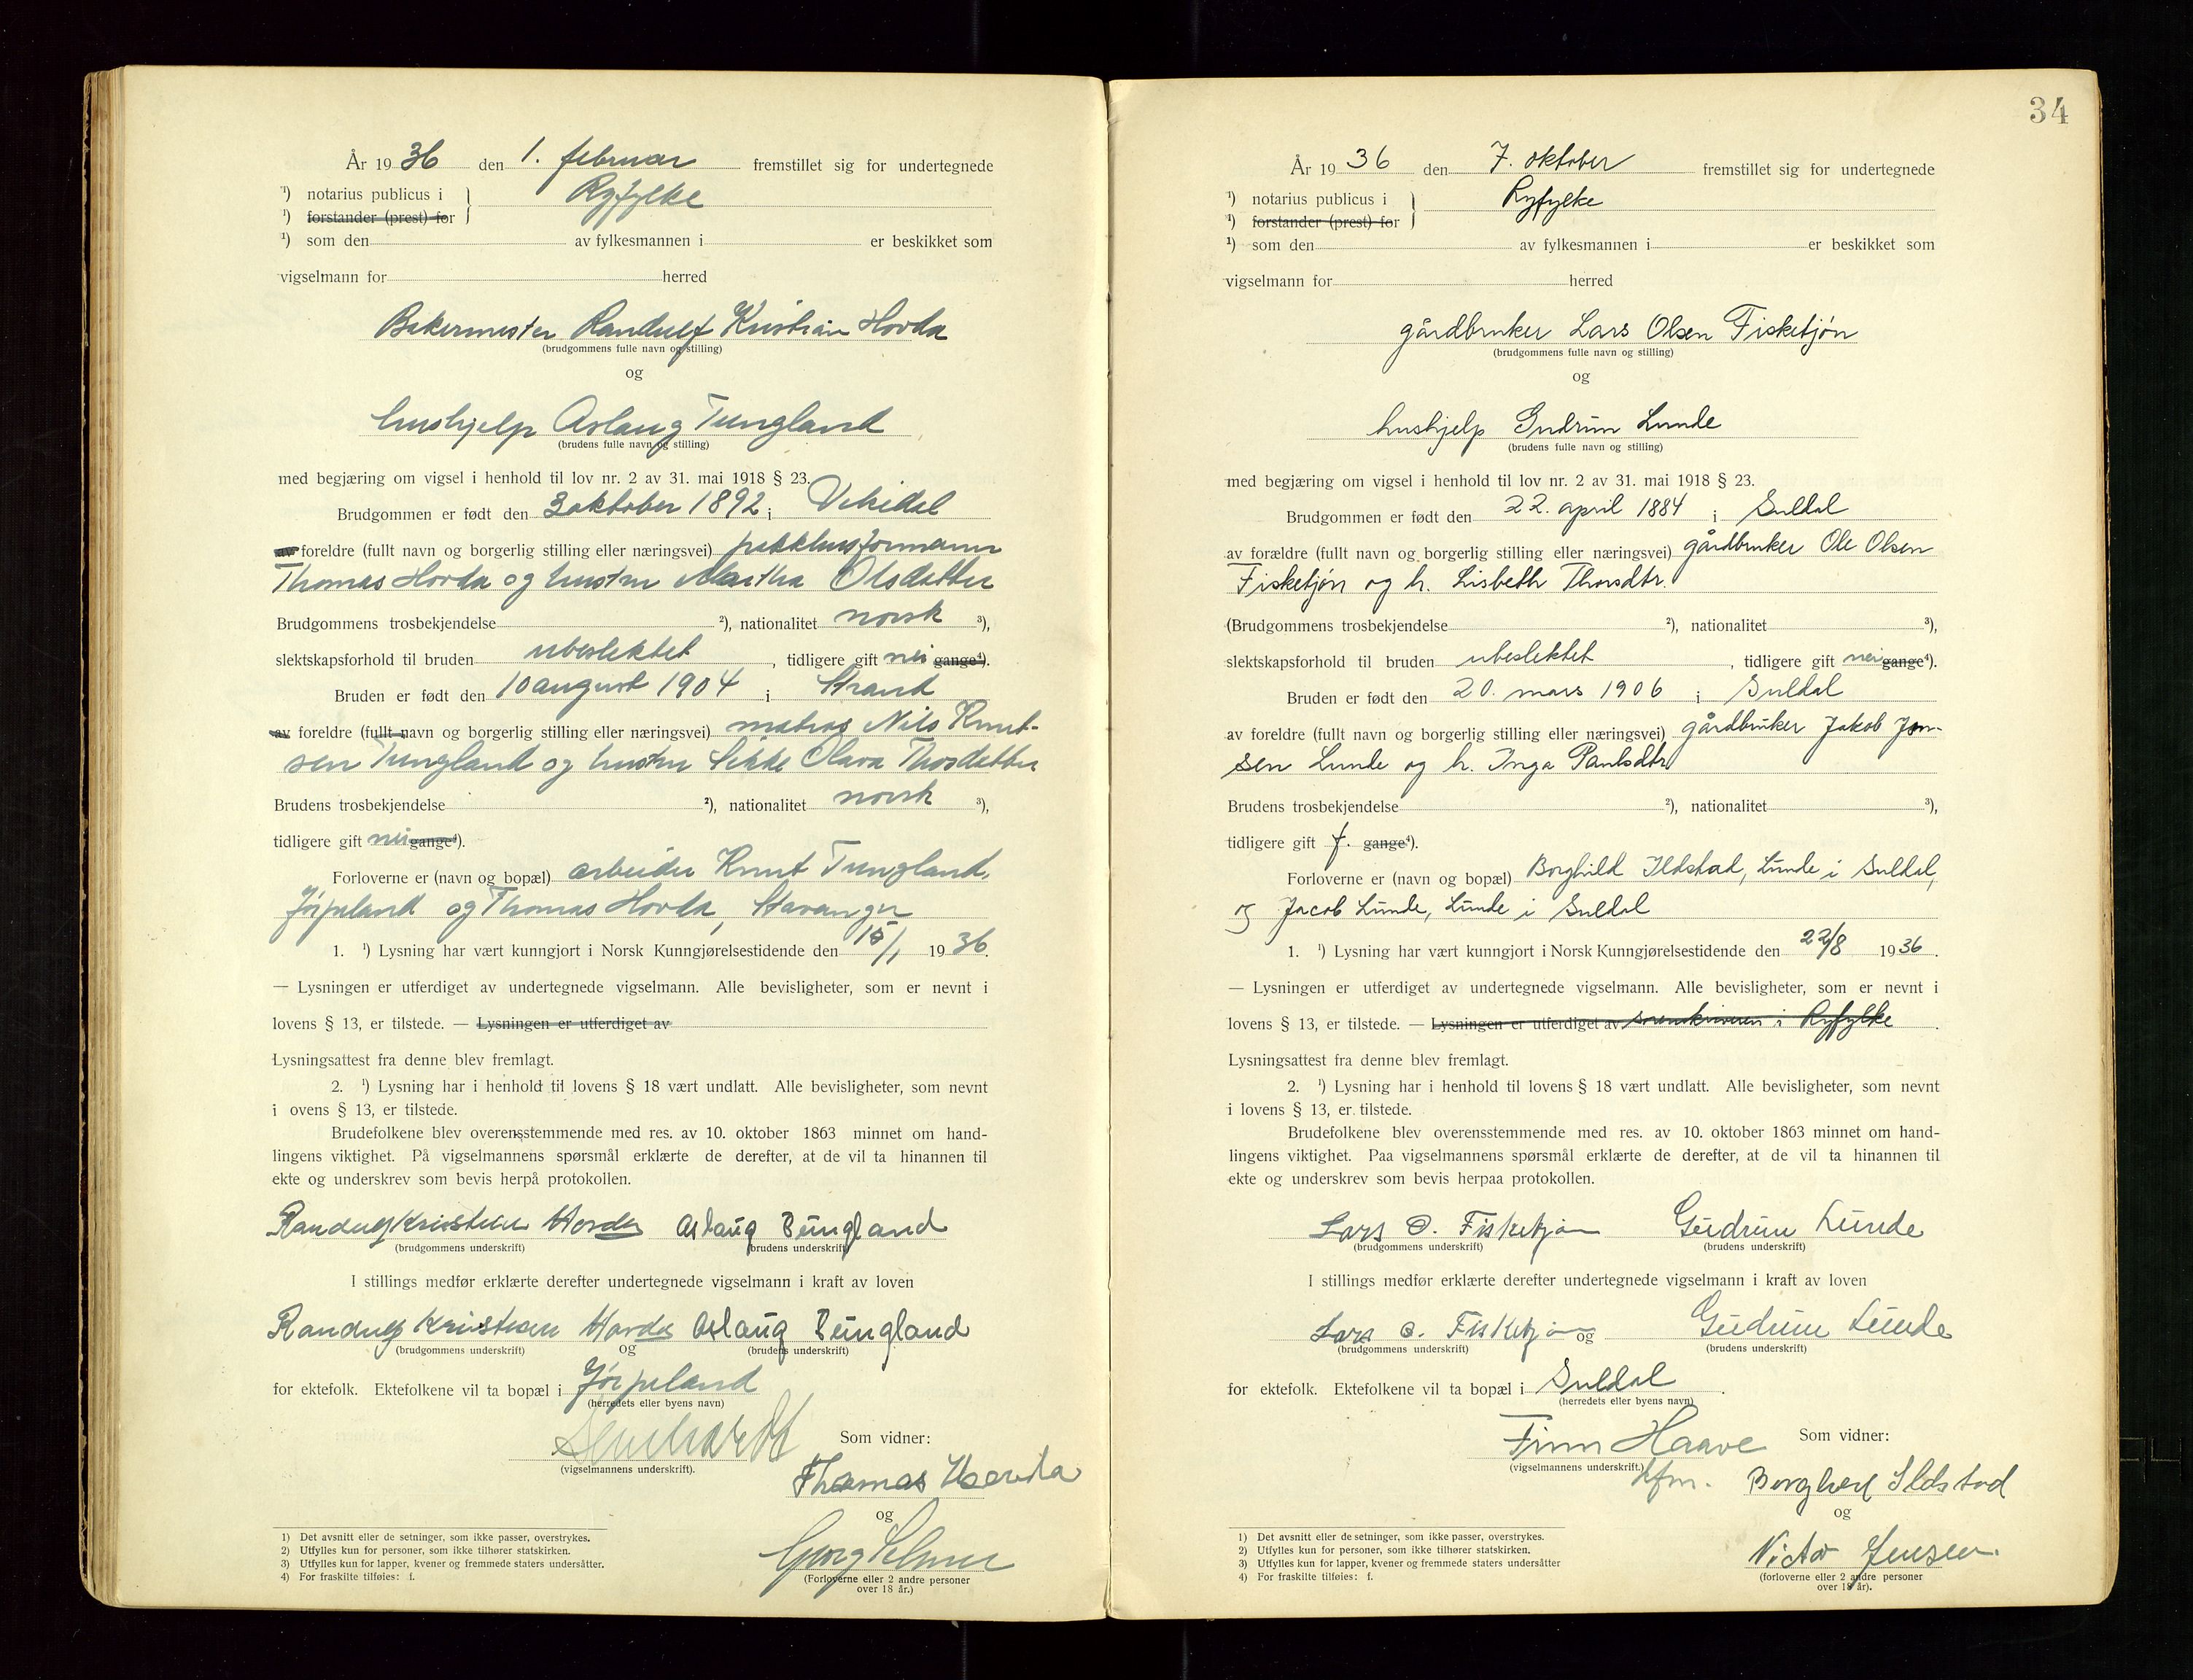 År 1936 den 1. februar fremstillet sig for undertegnede
¹) notarius publicus i } Ryfylke
¹) forstander (prest) for
¹) som den av fylkesmannen i er beskikket som
vigselmann for herred
Bakermester Randulf Kristian Hovda
(brudgommens fulle navn og stilling)
og
hushjelp Aslaug Tungland
(brudens fulle navn og stilling)
med begjæring om vigsel i henhold til lov nr. 2 av 31. mai 1918 § 23.
Brudgommen er født den 3 oktober 1892 i Vikedal
av foreldre (fullt navn og borgerlig stilling eller næringsvei) pakkhusformann
Thomas Hovda og hustru Martha Olsdatter
Brudgommens trosbekjendelse ²), nationalitet norsk ³),
slektskapsforhold til bruden ubeslektet, tidligere gift nei gange⁴).
Bruden er født den 10 august 1904 i Strand
av foreldre (fullt navn og borgerlig stilling eller næringsvei) matros Nils Knut-
sen Tungland og hustru Olava Thosdatter
Brudens trosbekjendelse ²), nationalitet norsk ³),
tidligere gift nei gange⁴).
Forloverne er (navn og bopæl) arbeider Knut Tungland,
Jørpeland og Thomas Hovda, Stavanger
1. ¹) Lysning har vært kunngjort i Norsk Kunngjørelsestidende den 15/1 1936.
— Lysningen er utferdiget av undertegnede vigselmann. Alle bevisligheter, som er nevnt i
lovens § 13, er tilstede. — Lysningen er utferdiget av
Lysningsattest fra denne blev fremlagt.
2. ¹) Lysning har i henhold til lovens § 18 vært undlatt. Alle bevisligheter, som nevnt
i ovens § 13, er tilstede.
Brudefolkene blev overensstemmende med res. av 10. oktober 1863 minnet om hand-
lingens viktighet. På vigselmannens spørsmål erklærte de derefter, at de vil ta hinannen til
ekte og underskrev som bevis herpå protokollen.
Randulf Kristian Hovda Aslaug Tungland
(brudgommens underskrift) (brudens underskrift)
I stillings medfør erklærte derefter undertegnede vigselmann i kraft av loven
Randulf Kristian Hovda og Aslaug Tungland
(brudgommens underskrift) (brudens underskrift)
for ektefolk. Ektefolkene vil ta bopæl i Jørpeland
(herredets eller byens navn)
Som vidner:
(vigselmannens underskrift).
Thomas Hovda
og
Georg Selmer
(Forloverne eller 2 andre personer
over 18 år.)
1) Det avsnitt eller de setninger, som ikke passer, overstrykes.
2) Utfylles kun for personer, som ikke tilhører statskirken.
3) Utfylles kun for lapper, kvener og fremmede staters undersåtter.
4) For fraskilte tilføies: f.
34
År 1936 den 7. oktober fremstillet sig for undertegnede
¹) notarius publicus i } Ryfylke
¹) forstander (prest) for
¹) som den av fylkesmannen i er beskikket som
vigselmann for herred
gårdbruker Lars Olsen Fisketjøn
(brudgommens fulle navn og stilling)
og
hushjelp Gudrun Lunde
(brudens fulle navn og stilling)
med begjæring om vigsel i henhold til lov nr. 2 av 31. mai 1918 § 23.
Brudgommen er født den 22. april 1884 i Suldal
av forældre (fullt navn og borgerlig stilling eller næringsvei) gårdbruker Ole Olsen
Fisketjøn og h. Lisbeth Thorsdtr.
(Brudgommens trosbekjendelse ²), nationalitet ³),
slektskapsforhold til bruden ubeslektet, tidligere gift nei gange⁴).
Bruden er født den 20. mars 1906 i Suldal
av foreldre (fullt navn og borgerlig stilling eller næringsvei) gårdbruker Jakob Jon-
sen Lunde og h. Inga Paulsdtr
Brudens trosbekjendelse ²), nationalitet ³),
tidligere gift f. gange⁴).
Forloverne er (navn og bopæl) Borghild Ilstad, Lunde i Suldal,
og Jacob Lunde, Lunde i Suldal
1. ¹) Lysning har vært kunngjort i Norsk Kunngjørelsestidende den 22/8 1936.
— Lysningen er utferdiget av undertegnede vigselmann. Alle bevisligheter, som er nevnt i
lovens § 13, er tilstede. — Lysningen er utferdiget av sorenskriveren i Ryfylke.
Lysningsattest fra denne blev fremlagt.
2. ¹) Lysning har i henhold til lovens § 18 vært undlatt. Alle bevisligheter, som nevnt
i lovens § 13, er tilstede.
Brudefolkene blev overensstemmende med res. av 10. oktober 1863 minnet om hand-
lingens viktighet. Paa vigselmannens spørsmål erklærte de derefter, at de vil ta hinannen til
ekte og underskrev som bevis herpaa protokollen.
Lars O. Fisketjøn Gudrun Lunde
(brudgommens underskrift) (brudens underskrift)
I stillings medfør erklærte derefter undertegnede vigselmann i kraft av loven
Lars O. Fisketjøn og Gudrun Lunde
(brudgommens underskrift) (brudens underskrift)
for ektefolk. Ektefolkene vil ta bopæl i Suldal.
(herredets eller byens navn)
Finn Haave Som vidner:
(vigselmannens underskrift.)
kfm. Borghild Ildstad
og
Victor Jensen.
(forloverne eller 2 andre personer
over 18 år).
1) Det avsnitt eller de setninger, som ikke passer, overstrykes.
2) Utfylles kun for personer, som ikke tilhører statskirken.
3) Utfylles kun for lapper, kvener og fremmede staters undersåtter
4) For fraskilte tilføies: f.